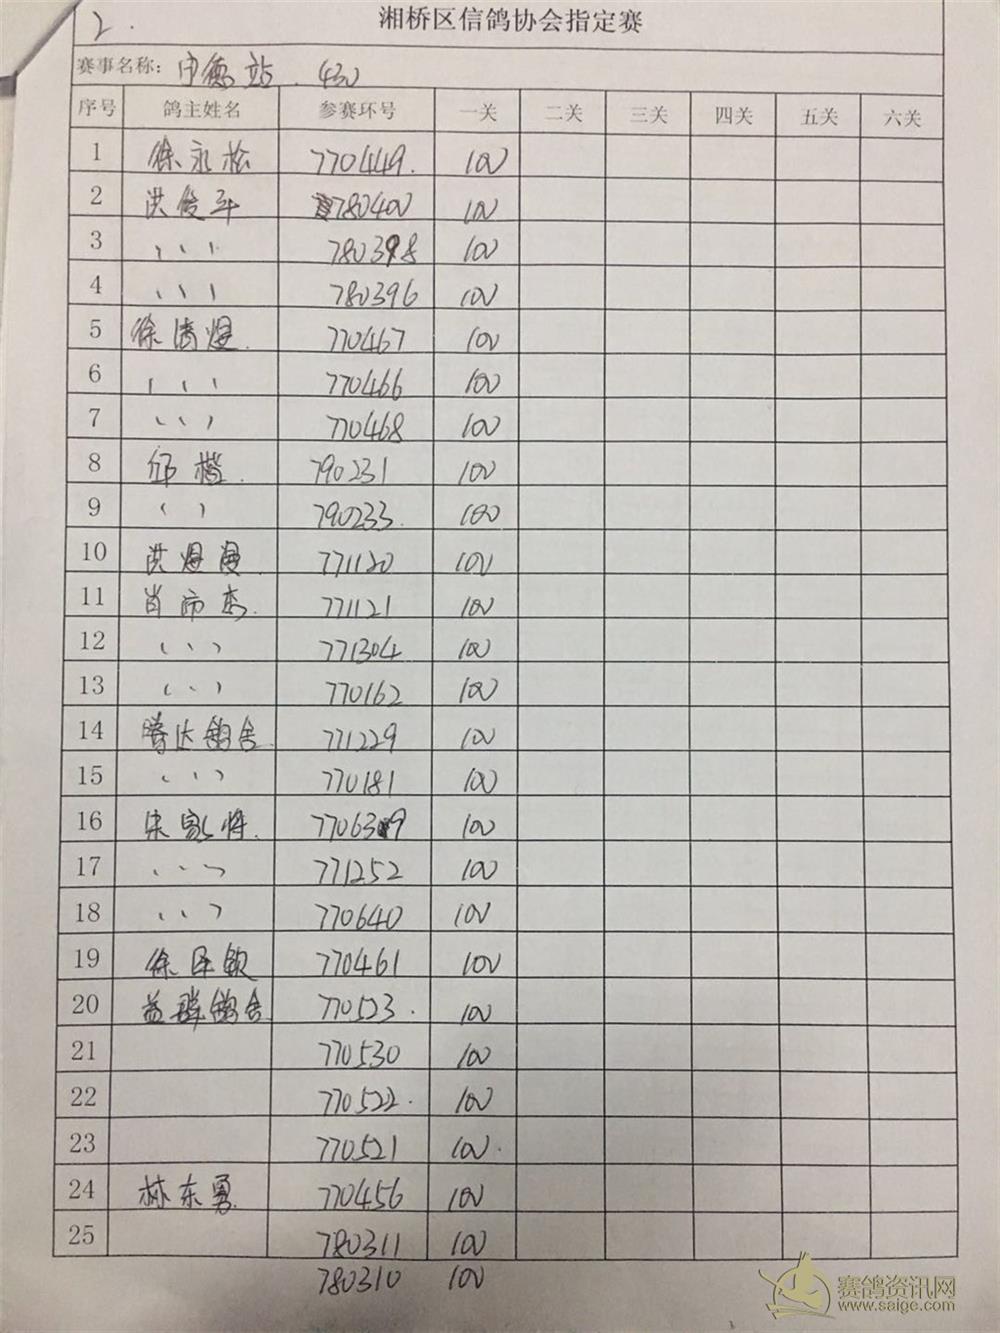 2.
湘桥区信鸽协会指定赛
赛事名称: 德站. 430
序号 鸽主姓名 参赛环号 一关 二关 三关 四关 五关 六关
1 徐永松 770449. 100
2 洪俊平 780400 100
3 、、、 780398 100
4 、、、 780396 100
5 徐清煜. 770467 100
6 、、、 770466 100
7 、、、 770468 100
8 邱楷. 790231 100
9 、、 790233. 100
10 洪 771120 100
11 肖杰. 771121 100
12 、、、 771304 100
13 、、、 770162 100
14 腾达鸽舍. 771229 100
15 、、、 770181 100
16 宋家 770639 100
17 、、、 771252 100
18 、、、 770640 100
19 徐钦 770461 100
20 益群鸽舍 770523. 100
21 770530 100
22 770522. 100
23 770521 100.
24 林东勇. 770456 100
25 780311 100
780310 100
赛鸽资讯网
www.saige.com